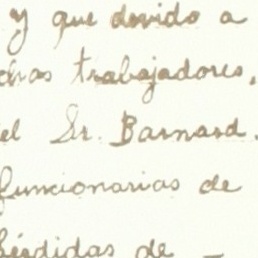 y que devido a
trabajadores,
el Sr. Barnard.
funcionarias de
pérdidas de